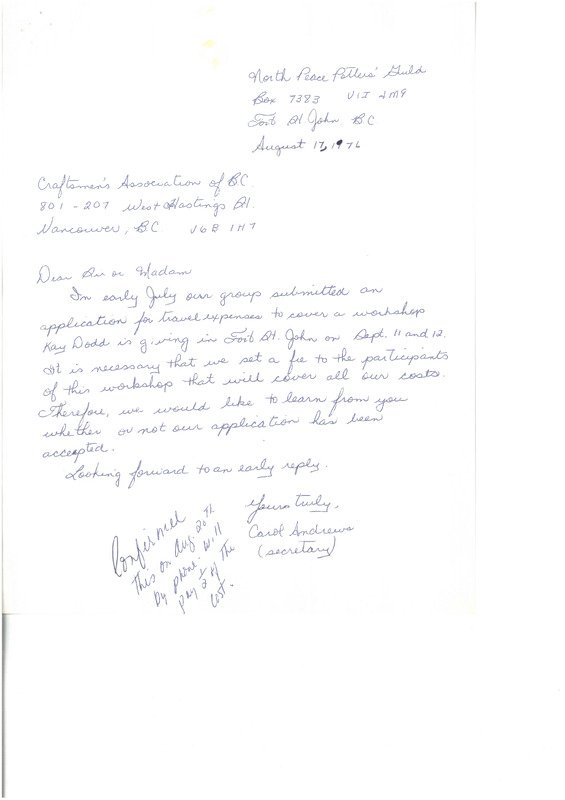 North Peace Potters' Guild
Box 7383 V1J 4M9
Fort St John BC
August 17, 1976
Craftsmen's Association of B.C.
801 - 207 West Hastings St.
Vancouver, B.C. V6B 1H7
Dear Sir or Madam
In early July our group submitted an
application for travel expenses to cover a workshop
Kay Dodd is giving in Fort St. John on Sept. 11 and 12.
It is necessary that we set a fee to the participants
of this workshop that will cover all our costs.
Therefore, we would like to learn from you
whether or not our application has been
accepted.
Looking forward to an early reply.
Yours truly,
Carol Andrews
(secretary)
Confirmed
this on Aug. 20th
by phone. Will
pay of the
cost.